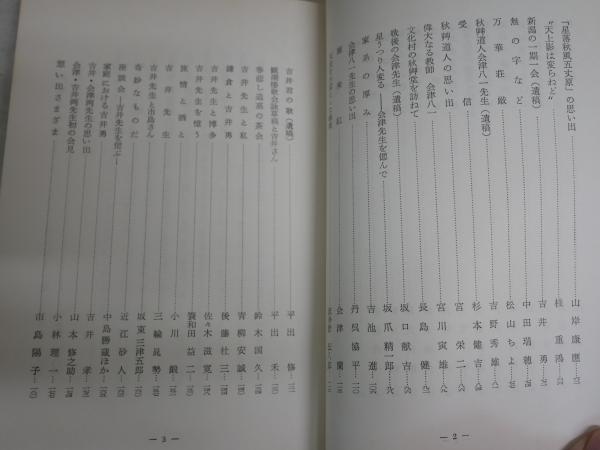 「星落秋風五丈原」の思い出……山岸康應
“天上影は変らねど”……桂重鴻
新潟の一期一会（遺稿）……吉井勇
無の字など……中田瑞穂
万華荘厳……松山ちよ
秋艸道人会津八一先生（遺稿）……吉野秀雄
受信……杉本健吉
秋艸道人の思い出……宮栄二
偉大なる教師　会津八一……宮川寅雄
文化村の秋艸堂を訪ねて……長島健
戦後の会津先生（遺稿）……坂口献吉
会津八一先生の思い出……坂爪精一郎
星うつり人変る——会津先生を偲んで……吉池進
家系の厚み……丹呉協平
会津蘭
— 2 —
吉井君の歌（遺稿）……平出修
観潮楼歌会詠草稿と吉井さん……平出禾
春悲し追慕の茶会……鈴木国久
吉井先生と私……青柳安誠
鎌倉と吉井勇……後藤杜三
吉井先生と博多……佐々木滋寛
吉井先生を憶う……簔和田益二
旅情と酒と……小川鍛
吉井先生……三輪晁勢
吉井先生と市島さん……坂東三津五郎
奇妙なものだ……近江砂人
座談会—吉井先生を偲ぶ—……中島勝蔵ほか
家庭における吉井勇……吉井孝
吉井・会津両先生の思い出……山本修之助
会津・吉井両先生初の会見……小林理一
思い出さまざま……市島陽子
— 3 —